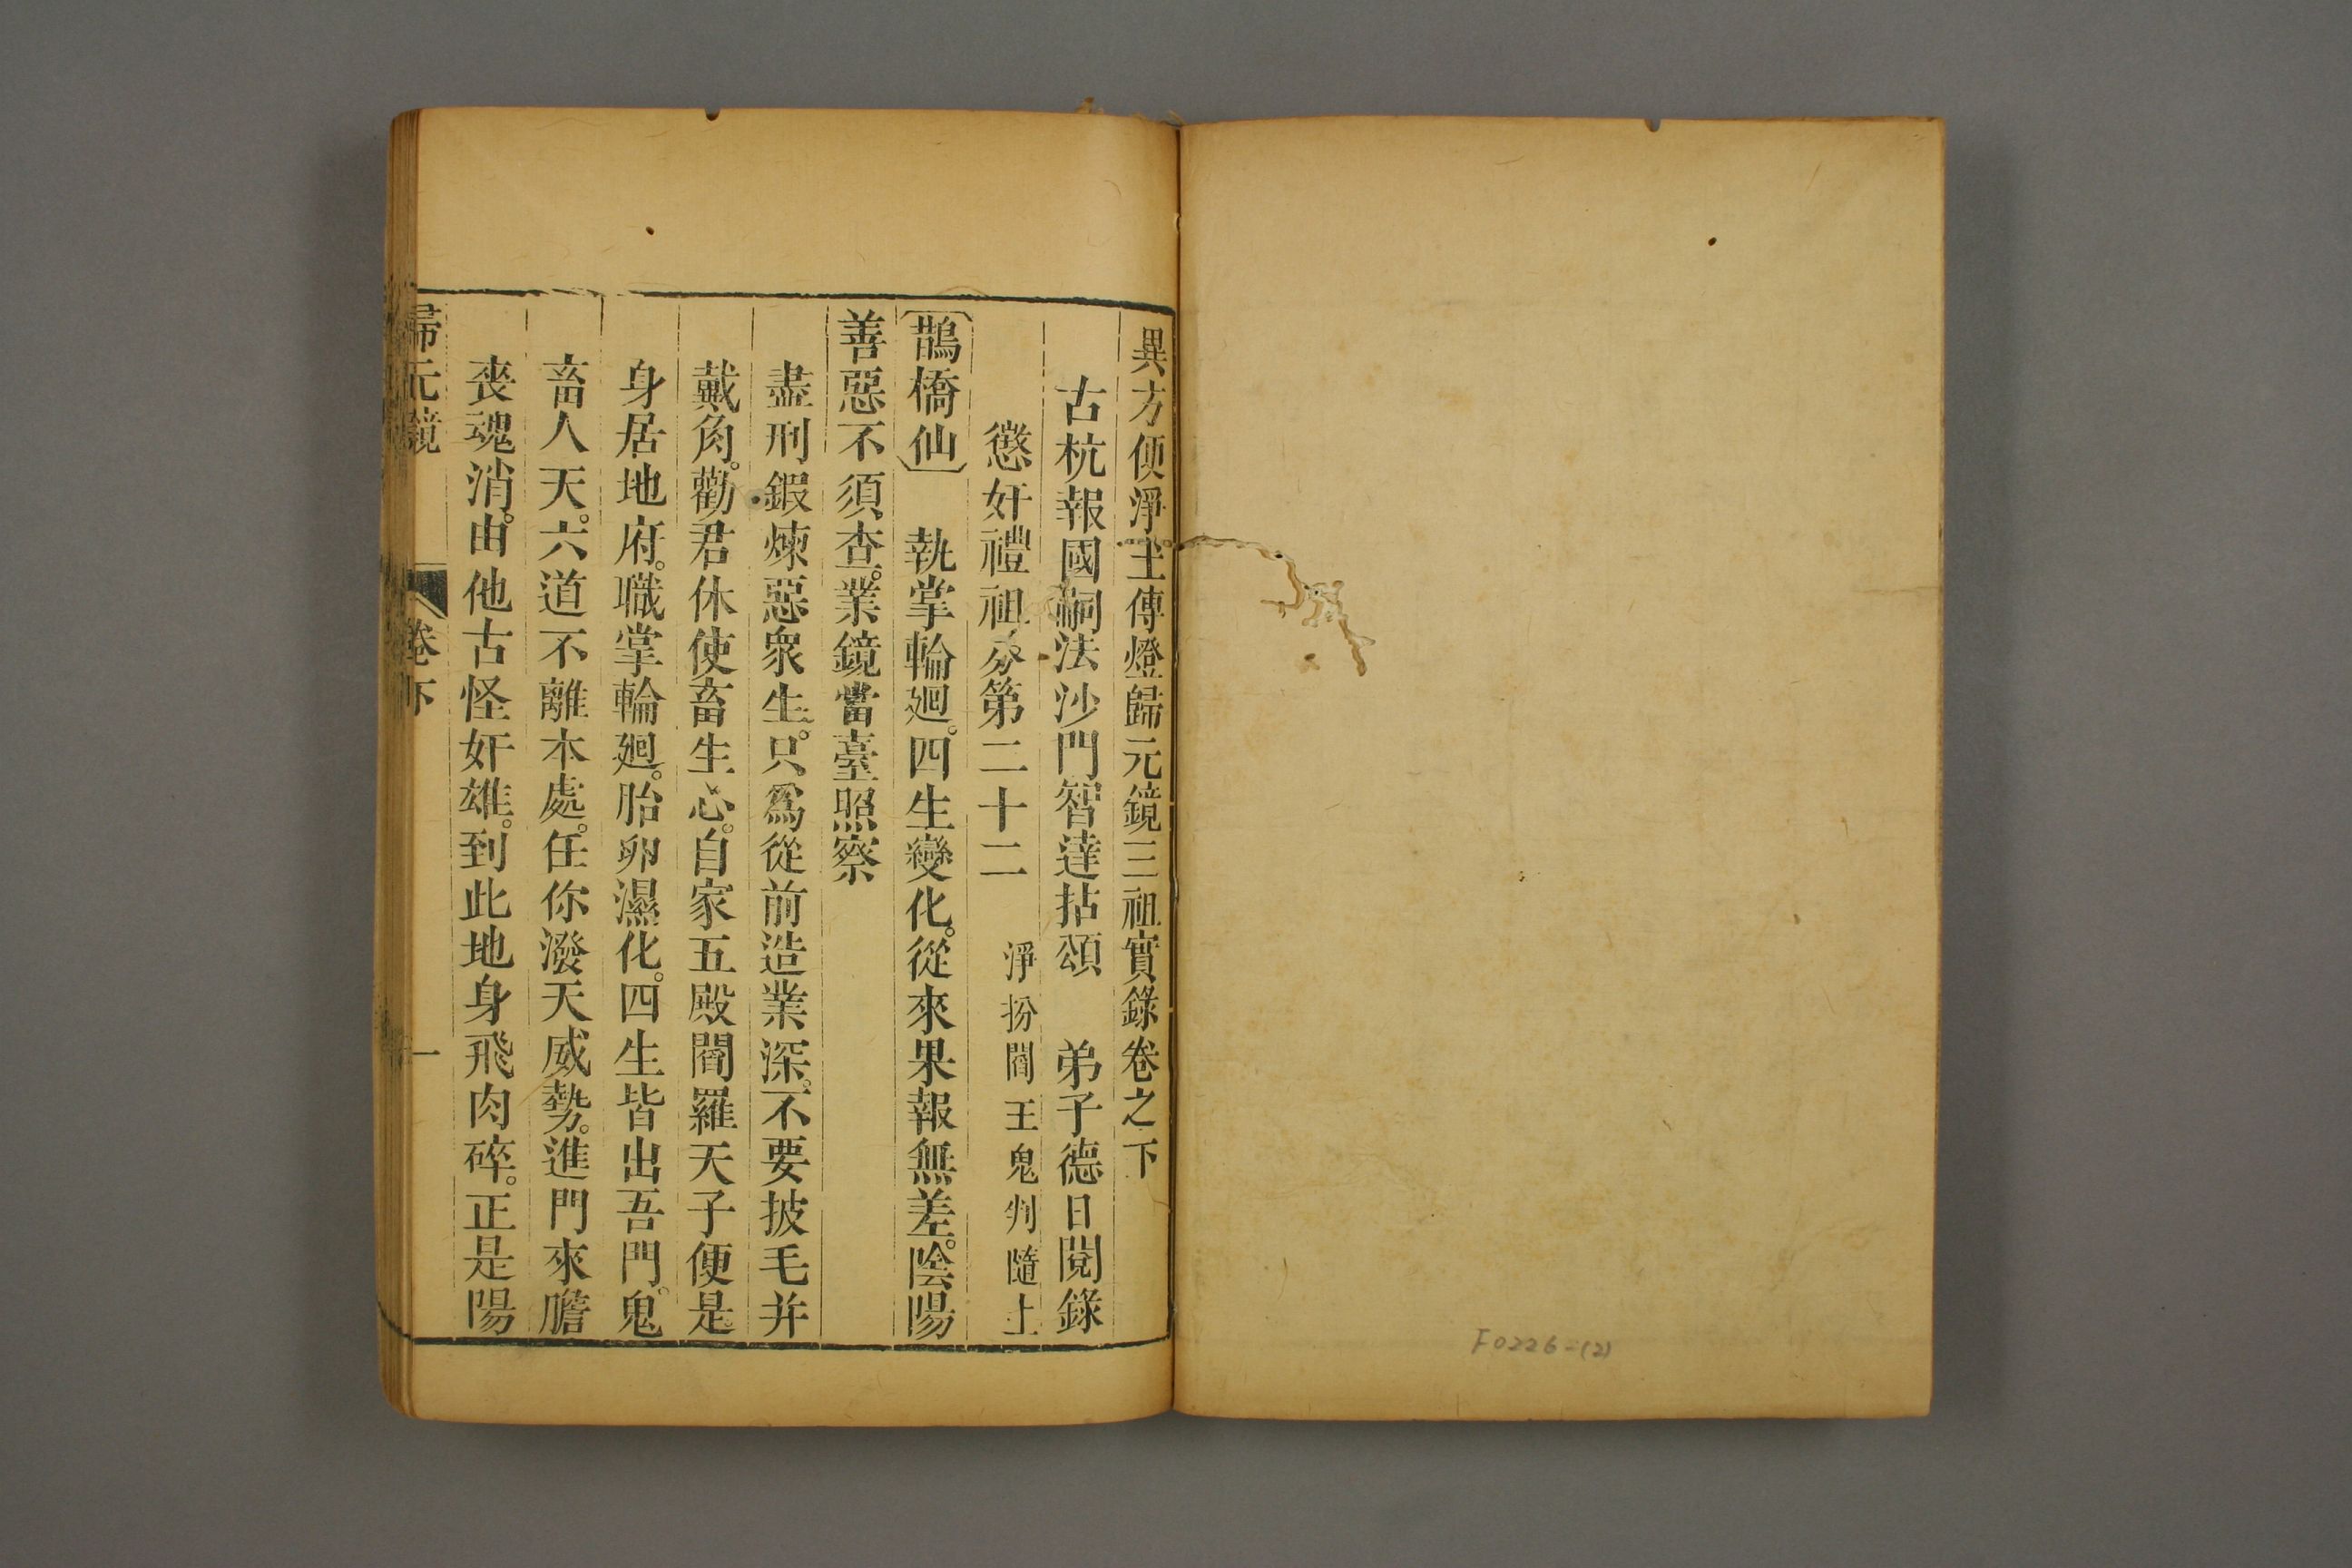 異方便淨土傳燈歸元鏡三祖實錄卷之下
古杭報國嗣法沙門智達拈頌　弟子德日閱錄
懲奸禮祖分第二十二　淨扮閻王鬼判隨上
〔鵲橋仙〕　執掌輪廻。四生變化。從來果報無差。陰陽
善惡不須查。業鏡當臺照察
盡刑鍜煉惡衆生。只爲從前造業深。不要披毛并
戴角。勸君休使畜生心。自家五殿閻羅天子便是。
身居地府。職掌輪廻。胎卵濕化。四生皆出吾門。鬼
畜人天。六道不離本處。任你潑天威勢。進門來膽
喪魂消。由他古怪奸雄。到此地身飛肉碎。正是陽
歸元鏡　卷下　一
F0226-(2)